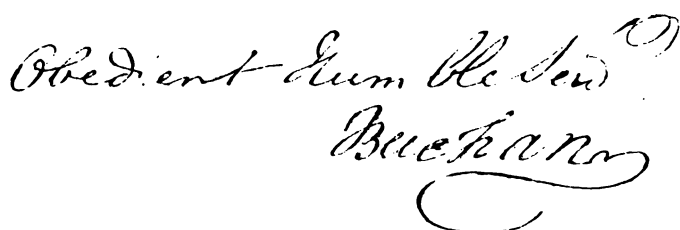 Obedient Humble Serv^t
Buchan